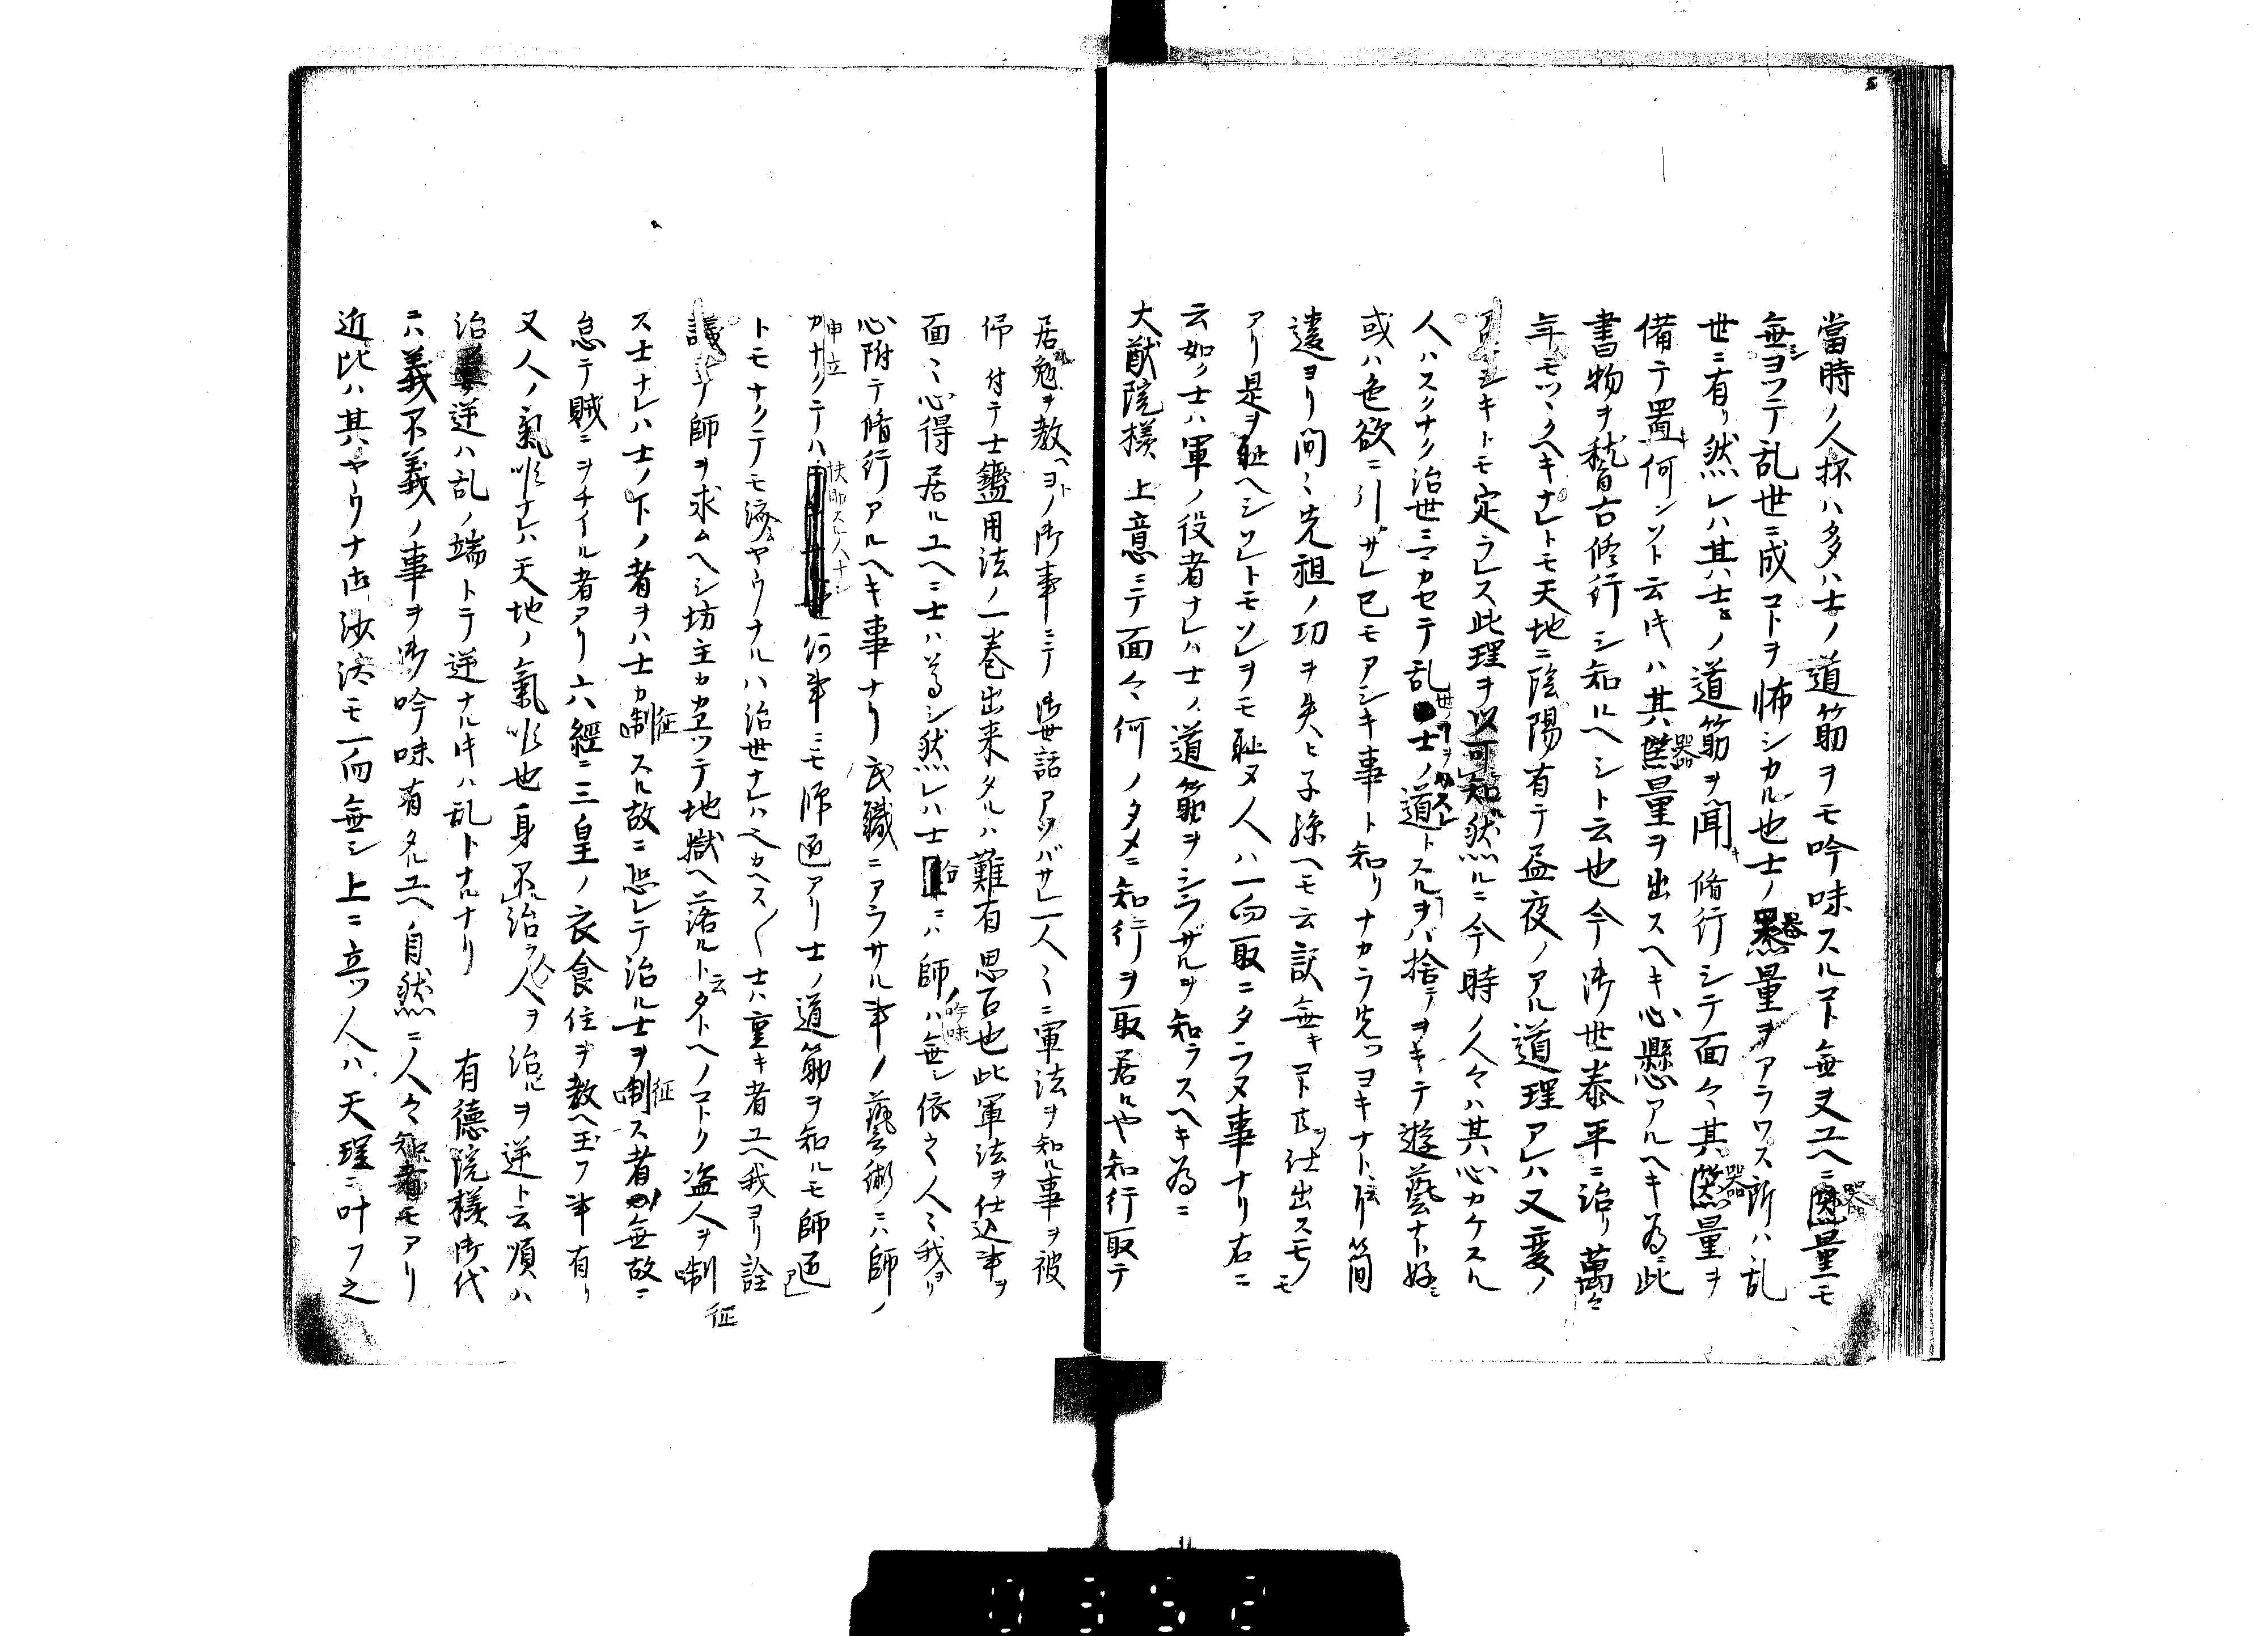 當時ノ人抔ハ多ハ士ノ道筋ヲモ吟味スルコト無ヌユヘニ器量モ
無シヨツテ乱世ニ成コトヲ怖シカル也士ノ器量ヲアラワス所ハ乱
世ニ有リ然レハ其ハ士ノ道筋ヲ聞キ脩行シテ面々其器量ヲ
備テ置キ何ンソト云時ハ其器量ヲ出スヘキ心懸アルヘキ為ニ此
書物ヲ稽古修行シ知ルヘシト云也今御世泰平ニ治リ萬々
年モツヽクヘキナレトモ天地ニ陰陽有テ昼夜ノアル道理アレハ又変ノ
シキトモ定ラレス此理ヲ以可知然ルニ今時ノ人々ハ其心カケスル
人ハスクナク治世ニマカセテ乱世ノ士ノ道トスルヲハ捨テヲキテ遊藝ナト好ミ
或ハ色欲ニ引サレ已モアシキ事ト知リナカラ先ツヨキナト云リ簡
違ヨリ間々先祖ノ功ヲ失ヒ子孫ヘモ云訳無キコト共ヲ仕出スモノモ
アリ是ヲ恥ヘシソレトモソレヲモ恥ヌ人ハ一向取ニタラヌ事ナリ右ニ
云如ク士ハ軍ノ役者ナレハ士ノ道筋ヲシラザルヲ知ラスヘキ為ニ
大猷院様 上意ニテ面々何ノタメニ知行ヲ取居ルヤ知行取テ
居ル勉ヲ教ヘヨトノ御事ニテ御世話アソバサレ一人々ニ軍法ヲ知ル事ヲ被
仰付テ士鑑用法ノ一巻出来タルハ難有思召也此軍法ヲ仕込事ヲ
面々心得居ルユヘニ士ハ尊シ然レハ士ニハ師ノ吟味ハ無シ依之人々我ヨリ
心附テ脩行アルヘキ事ナリ武職ニアラサル事ノ藝術ニハ師ノ
申立カナクテハ何事ニモ師匠アリ士ノ道筋ヲ知ルモ師匠
トモナクテモ済ヤウナルハ治世ナレハヘカヘス〱士ハ重キ者ユヘ我ヨリ詮
議シテ師ヲ求ムヘシ坊主カ立ツテ地獄ヘ落ルト云タトヘノコトク盗人ヲ制征
ス士ナレハ士ノ下ノ者ヲハ士カ制征スル故ニ恐レテ治ル士ヲ制征ス者無故ニ
怠テ賊ニヲチイル者アリ六經ニ三皇ノ衣食住ヲ教ヘ玉フ事有リ
又人ノ氣順ナレハ天地ノ氣順也身不治シテ人ヲ治ルヲ逆ト云順ハ
治逆ハ乱ノ端トテ逆ナル時ハ乱トナルナリ 有徳院様御代
ニハ義不義ノ事ヲ御吟味有タルユヘ自然ニ人々知者モアリ
近比ハ其ヤウナ御沙汰モ一向無シ上ニ立ツ人ハ天理ニ叶フ之
0352